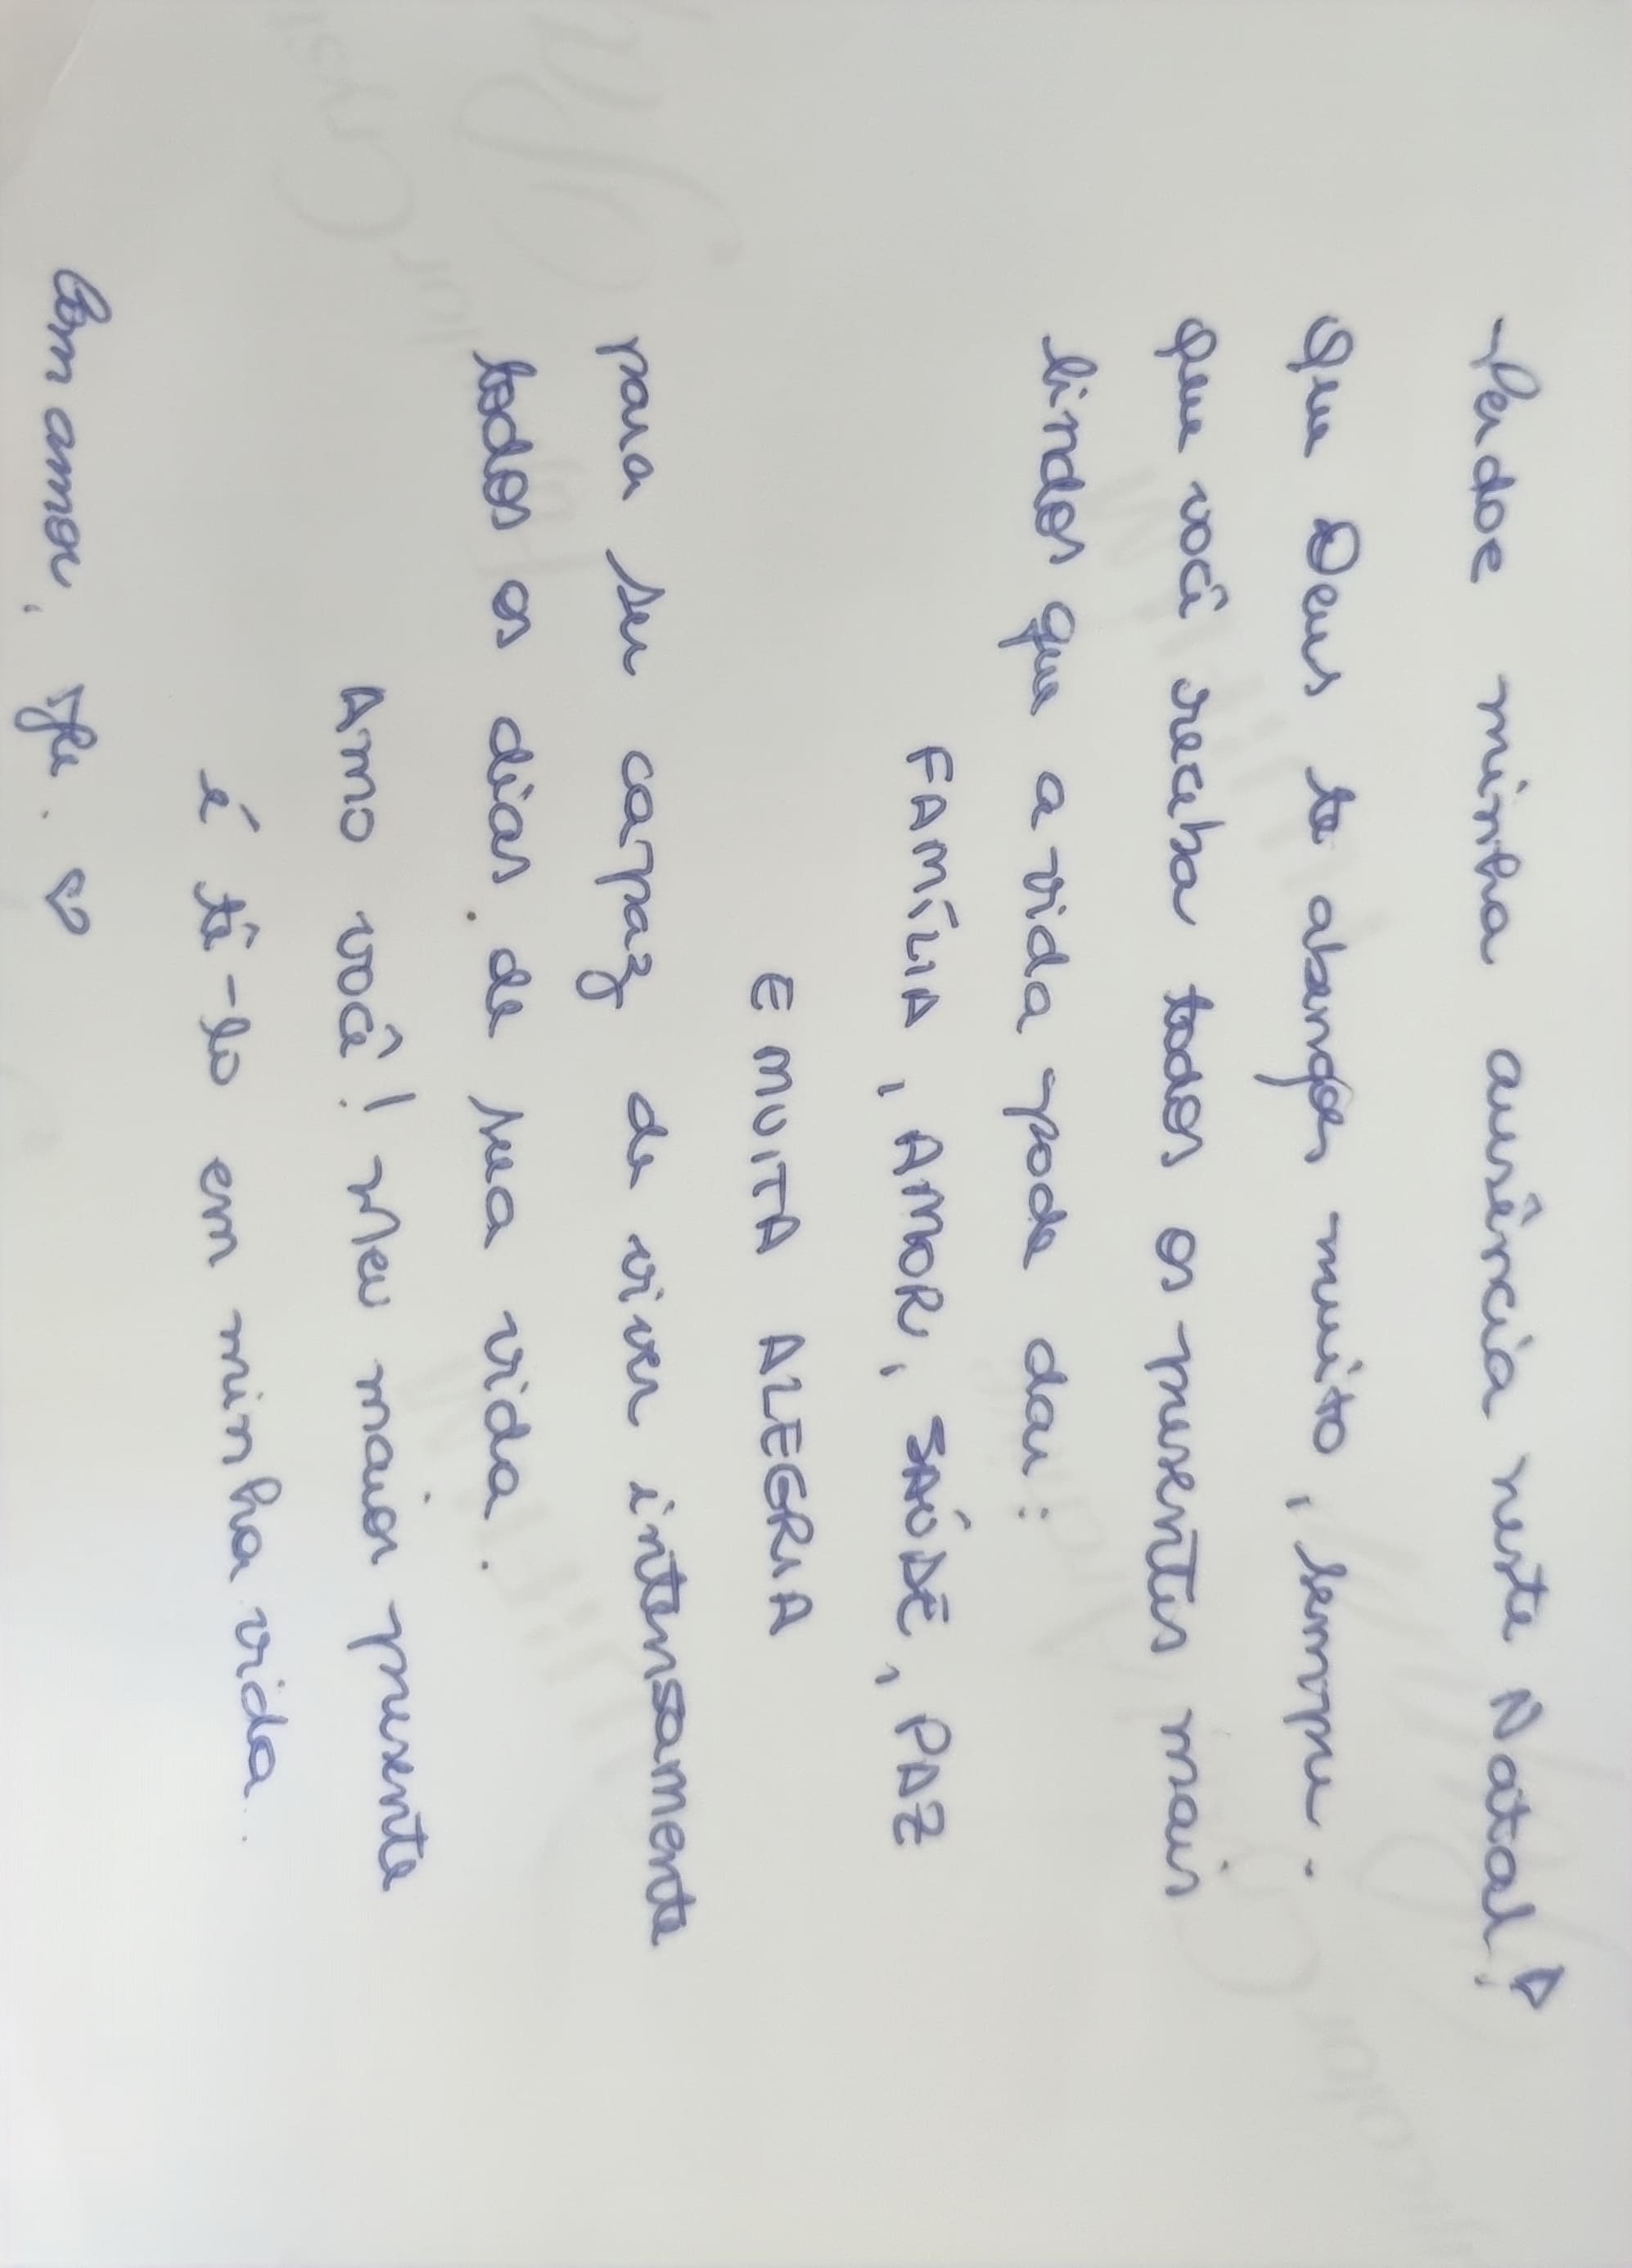 Perdoe minha ausência neste Natal!
Que Deus te abençoe muito, sempre.
Que você receba todos os presentes mais
lindos que a vida pode dar:
FAMÍLIA, AMOR, SAÚDE, PAZ
E MUITA ALEGRIA
para ser capaz de viver intensamente
todos os dias de sua vida.
Amo você! Meu maior presente
é tê-lo em minha vida.
Com amor,